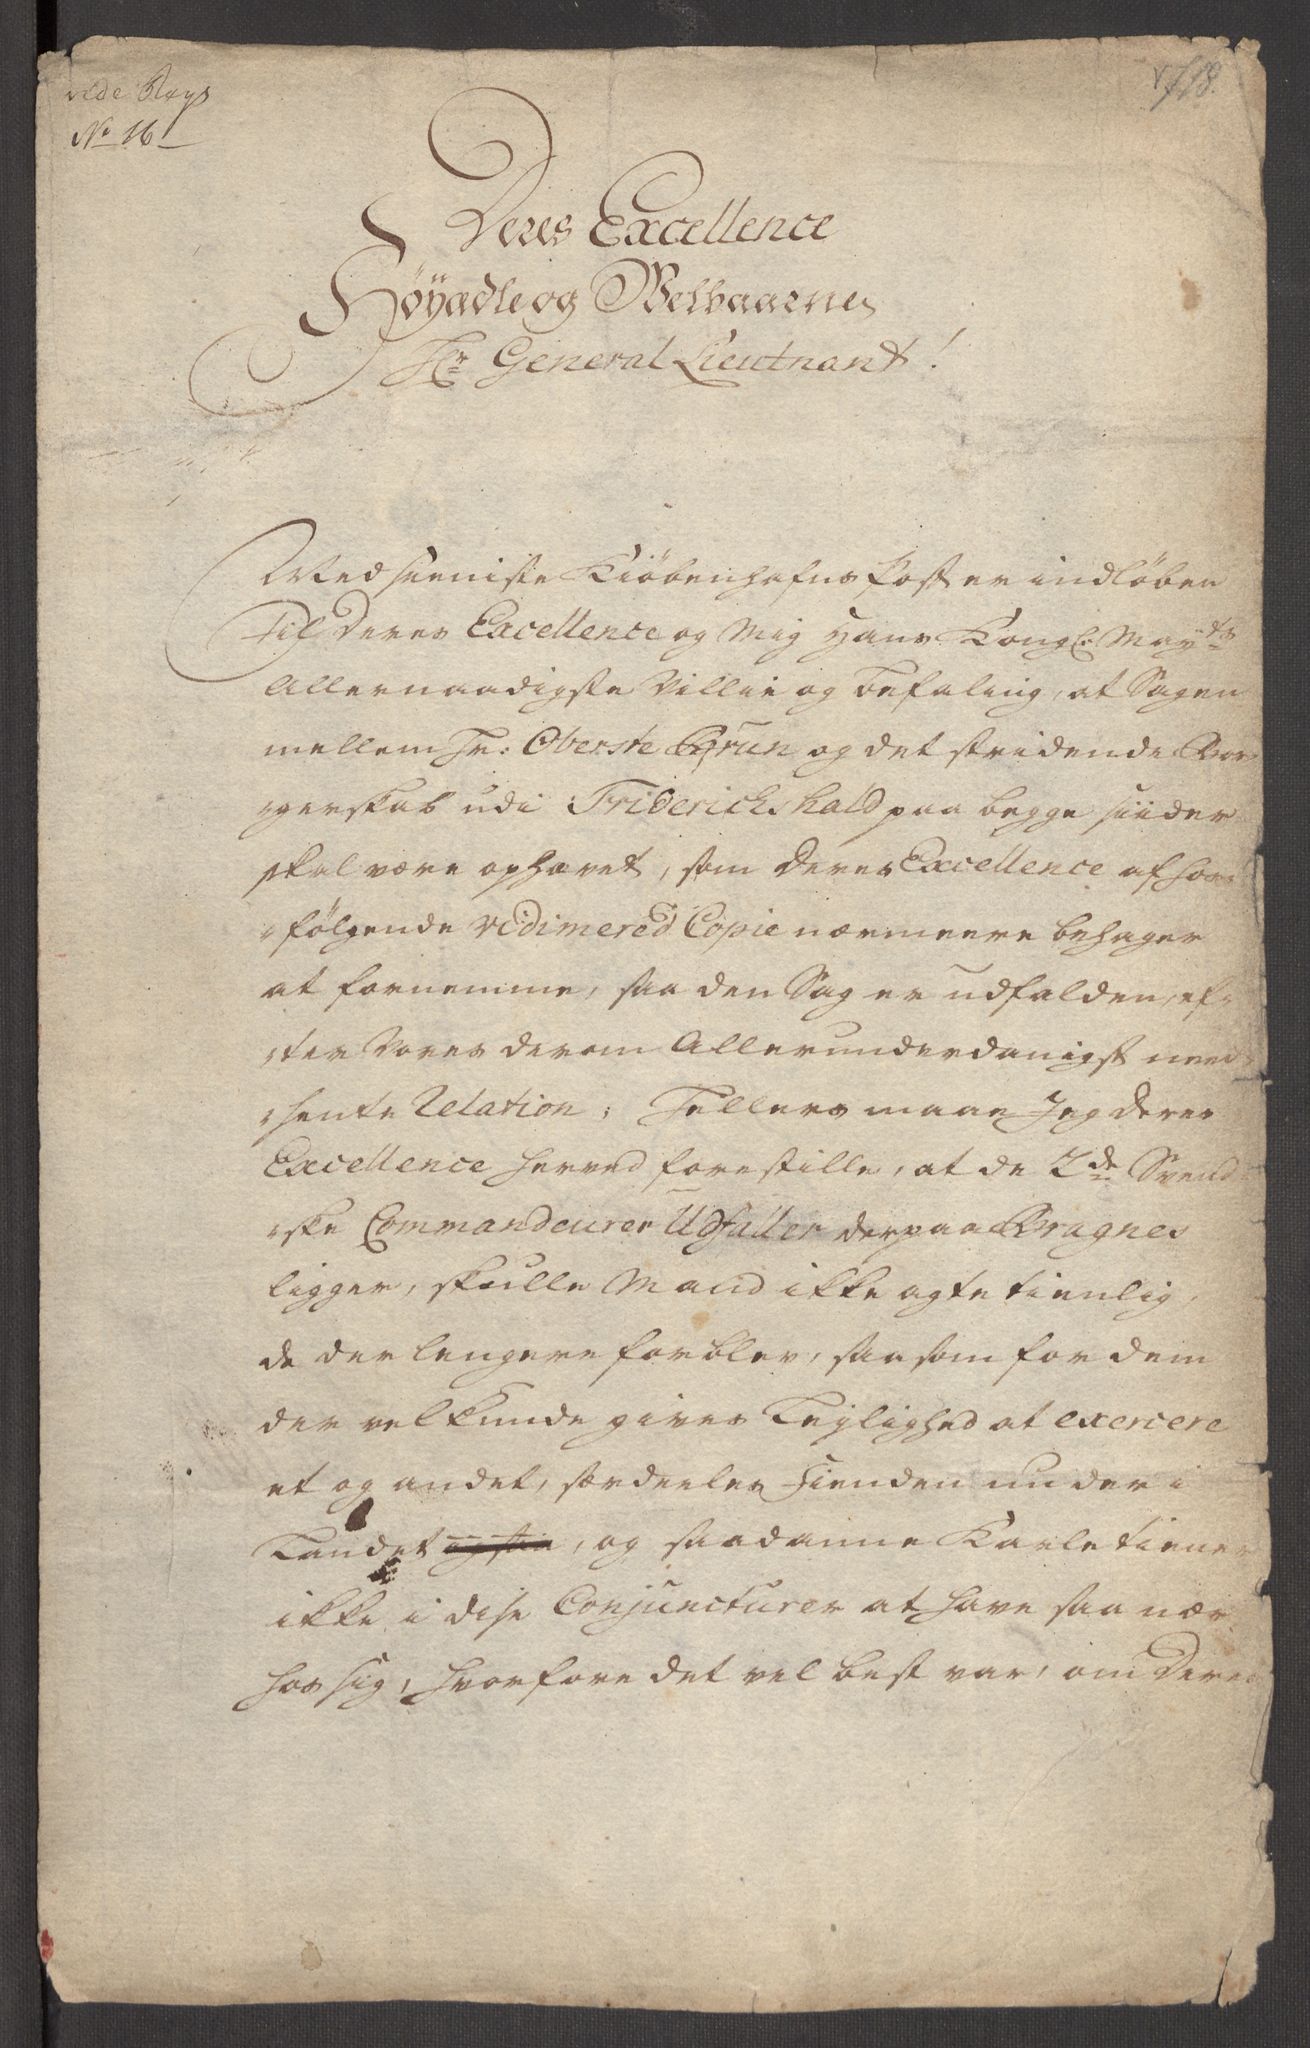 vide Reys
No 16
718.
Deres Excellence
Höyædle og Velbaarne
Hr General Lieutnant!
Med seeniste Kiöbenhafns Post er indlöben
Til Deres Excellence og Mig Hans Kongl. Mayts
Allernaadigste Villie og Befaling, at Sagen
mellem Hr: Oberste Brün og det stridende Bor
-gerskab udi Friderichshald paa begge siider
skal være ophævet, som Deres Excellence af hos-
-fölgende vidimered Copie nærmeere behager
at fornemme, saa den Sag er udfalden, ef-
-ter Vores derom Allerunderdanigst need-
-sente Relation; Tellers maae Jeg Deres
Excellence herved forestille, at de 2de Svend-
-ske Commandeurer Udfaller der paa Bragnes
ligger, skulle Mand ikke agte tienlig,
de der lengere forblev, saasom for dem
der vel kunde gives Leylighed at exercere
et og andet, særdeles Fienden under i
Landet , og saadanne Karle tiener
ikke i dise Conjuncturer at have saa nær
hos sig, hvorfore det vel best var, om Deres